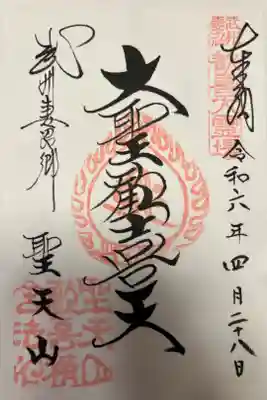 奉拝 令和六年四月二十八日
大聖歓喜天
武州妻沼郷
聖天山